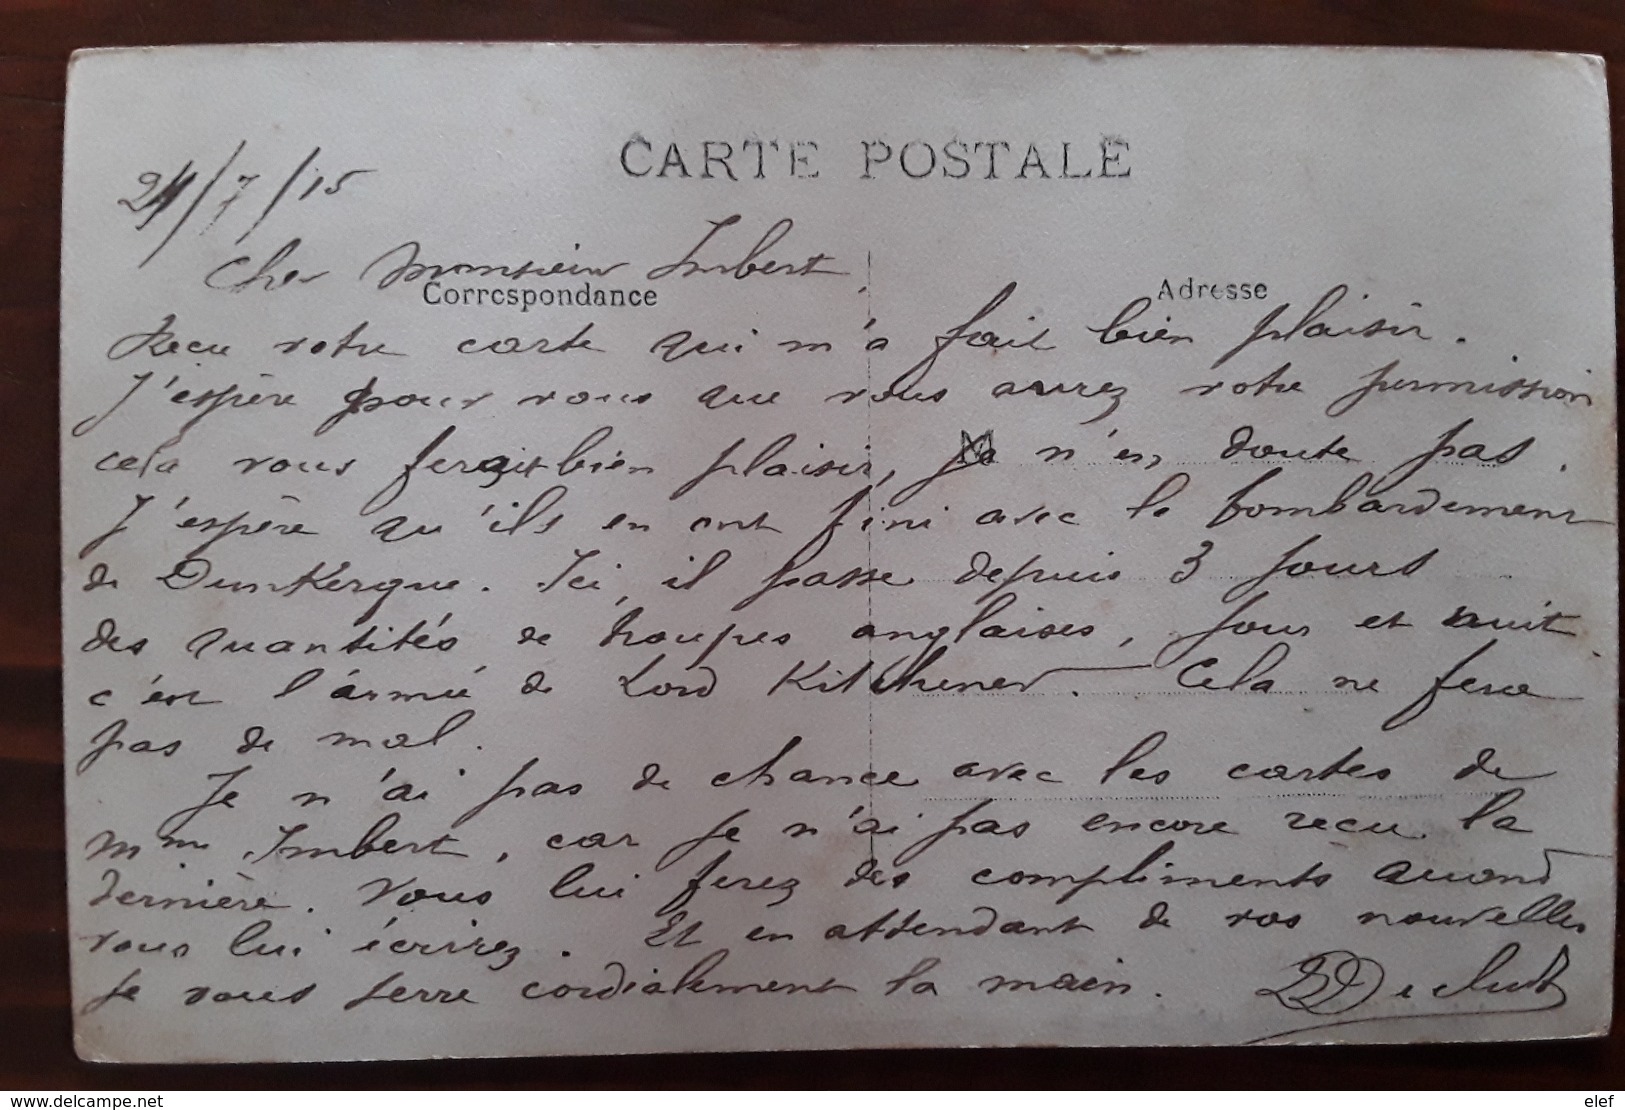 CARTE POSTALE
24/7/15
Cher Monsieur Imbert,
Correspondance
Adresse
Recu votre carte qui m'a fait bien plaisir.
J'espère pour vous que vous aurez votre permission
cela vous ferait bien plaisir, je n'en doute pas.
J'espère qu'ils en ont fini avec le bombardement
de Dunkerque. Ici, il passe depuis 3 jours
des quantités de troupes anglaises, jour et nuit
c'est l'armée de Lord Kitchener. Cela ne fera
pas de mal.
Je n'ai pas de chance avec les cartes de
Mme Imbert, car je n'ai pas encore recu la
dernière. Vous lui ferez des compliments quand
vous lui écrirez. Et en attendant de vos nouvelles
je vous serre cordialement la main.
www.delcampe.net
elef